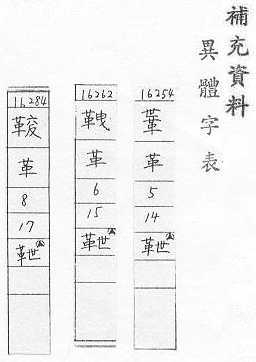 補充資料
異體字表
16254
革
5
14
靾
16262
革
6
15
靾
16284
革
8
17
靾